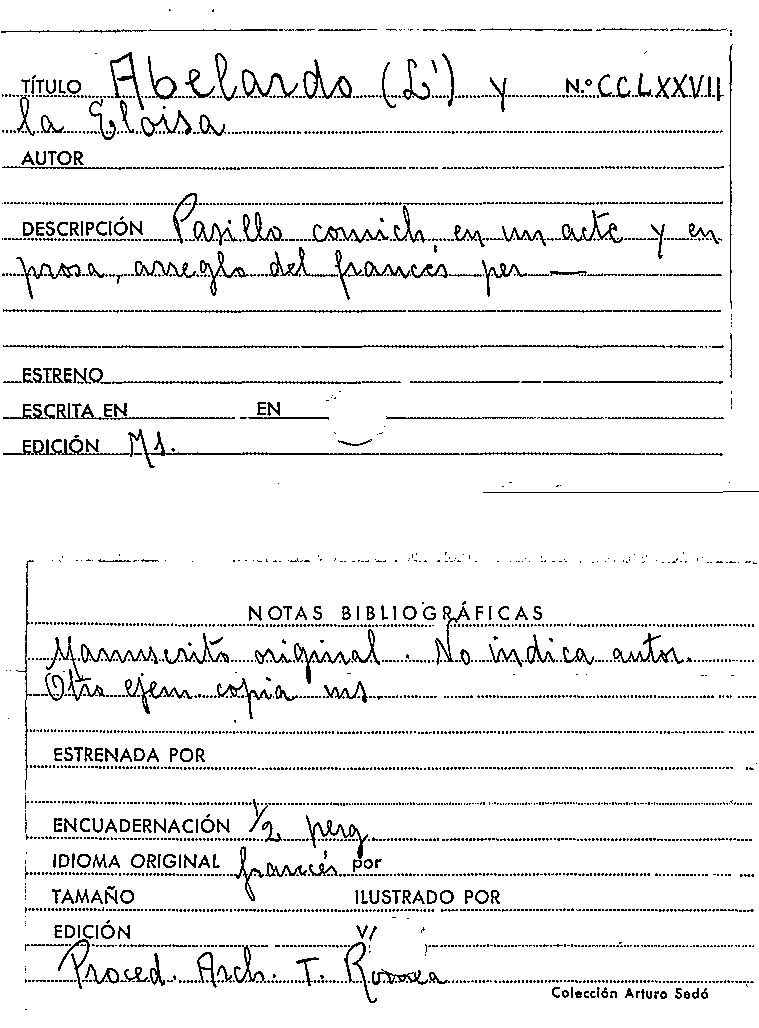 TÍTULO Abelardo (L') y N.º CCLXXVII
la Eloisa
AUTOR
DESCRIPCIÓN Pasillo comich, en un acte y en
prosa, arreglo del francés per —
ESTRENO
ESCRITA EN EN
EDICIÓN Ms.
NOTAS BIBLIOGRÁFICAS
Manuscrito original. No indica autor.
Otro ejem. copia ms.
ESTRENADA POR
ENCUADERNACIÓN 1/2 perg.
IDIOMA ORIGINAL francés por
TAMAÑO ILUSTRADO POR
EDICIÓN V/
Proced. Arch. T. Romea
Colección Arturo Sedó